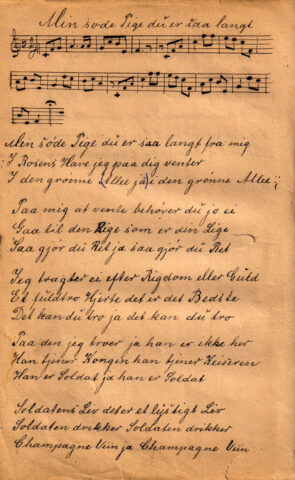 Men søde Pige du er saa langt
Men søde Pige du er saa langt fra mig
I Rosens Have jeg paa dig venter
I den grønne Allee ja i den grønne Allee
Paa mig at vente behøver du jo ei
Gaa til den Pige som er din Lige
Saa gjør du Ret ja saa gjør du Ret
Jeg tragter ei efter Rigdom eller Guld
Et fuldtro Hjerte det er det Bedste
Det kan du tro ja det kan du tro
Paa den jeg troer ja han er ikke her
Han tjener Kongen han tjener Keiseren
Han er Soldat ja han er Soldat
Soldatens Liv det er et lystigt Liv
Soldaten drikker Soldaten drikker
Champagne Viin ja Champagne Viin